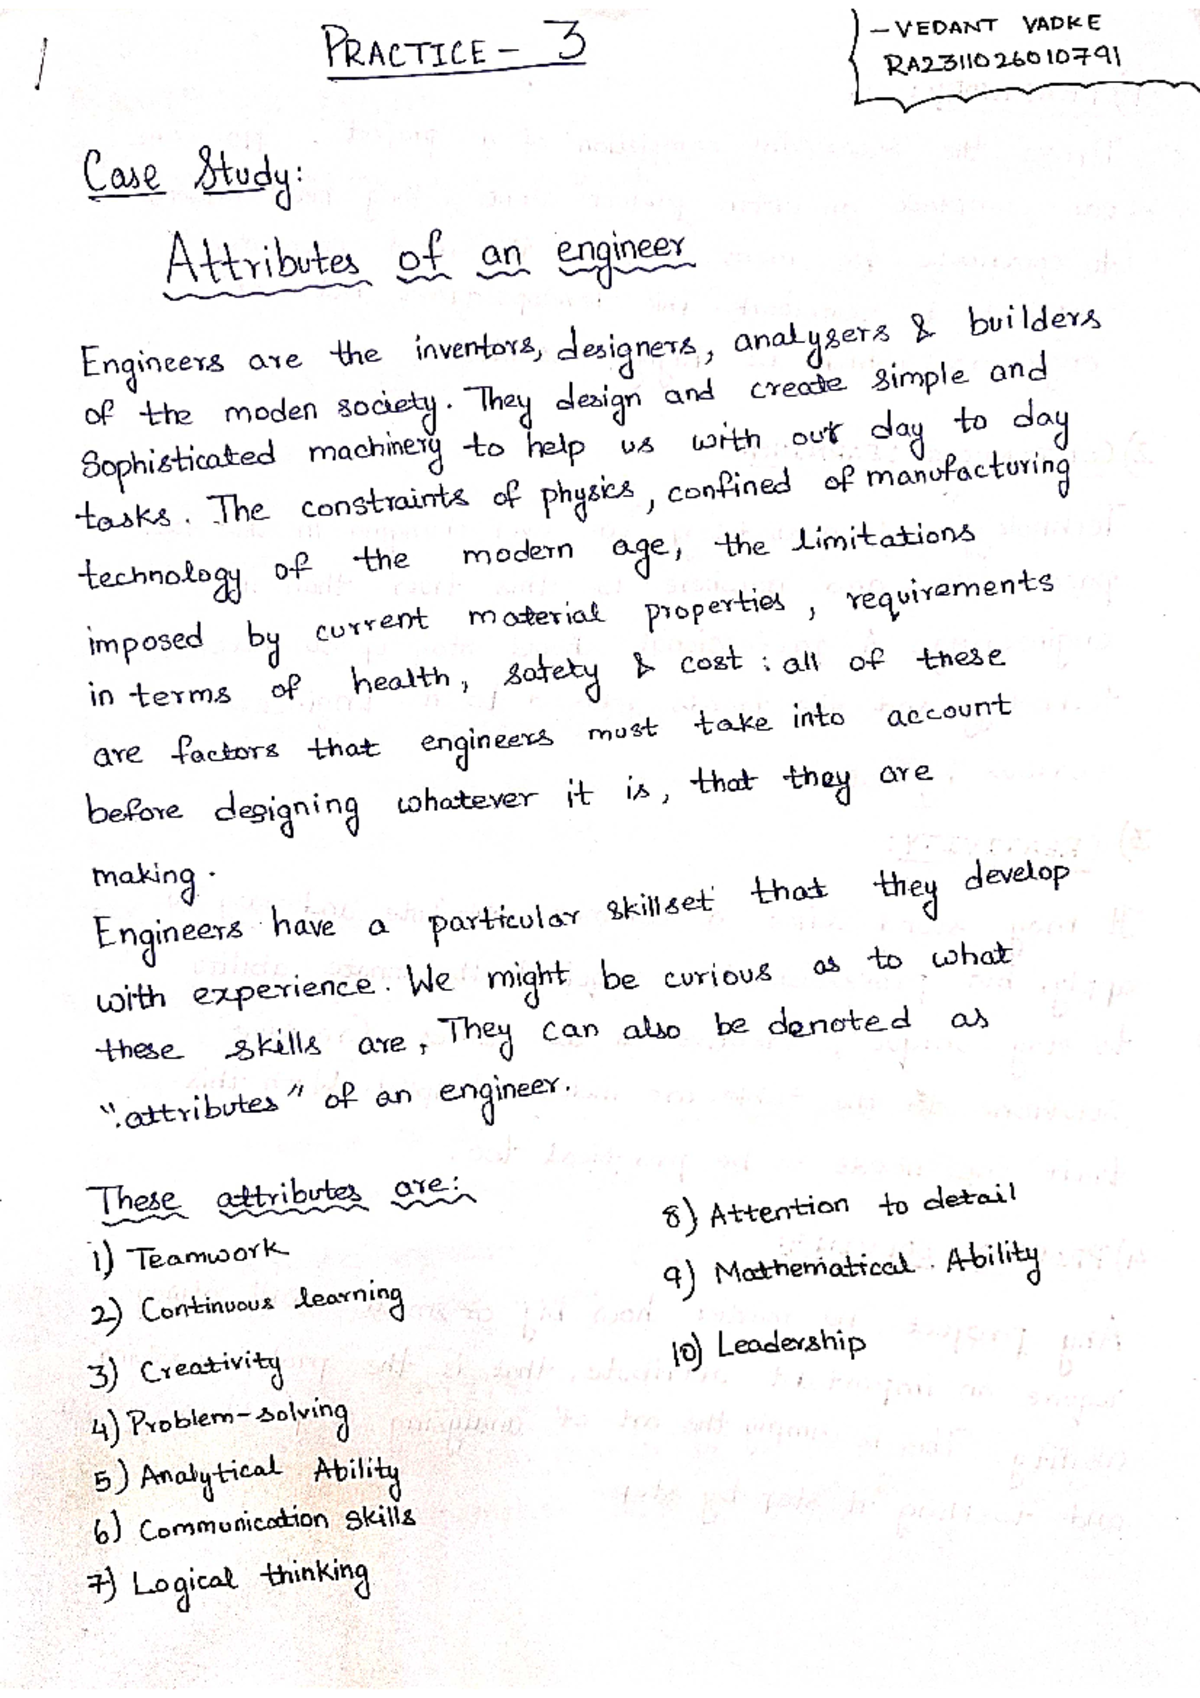 1
PRACTICE - 3
- VEDANT VADKE
RA2311026010791
Case Study:
Attributes of an engineer
Engineers are the inventors, designers, analysers & builders
of the moden society. They design and create simple and
Sophisticated machinery to help us with our day to day
tasks. The constraints of physics, confined of manufacturing
technology of the modern age, the limitations
imposed by current material properties, requirements
in terms of health, safety & cost : all of these
are factors that engineers must take into account
before designing whatever it is, that they are
making.
Engineers have a particular skillset that they develop
with experience. We might be curious as to what
these skills are, They can also be denoted as
"attributes" of an engineer.
These attributes are:
1) Teamwork
2) Continuous learning
3) Creativity
4) Problem-solving
5) Analytical Ability
6) Communication skills
7) Logical thinking
8) Attention to detail
9) Mathematical Ability
10) Leadership